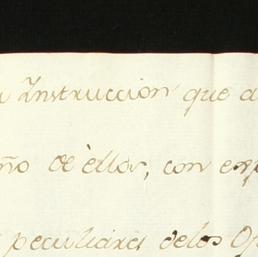 Instruccion que
de ellos, con
peculiares de los